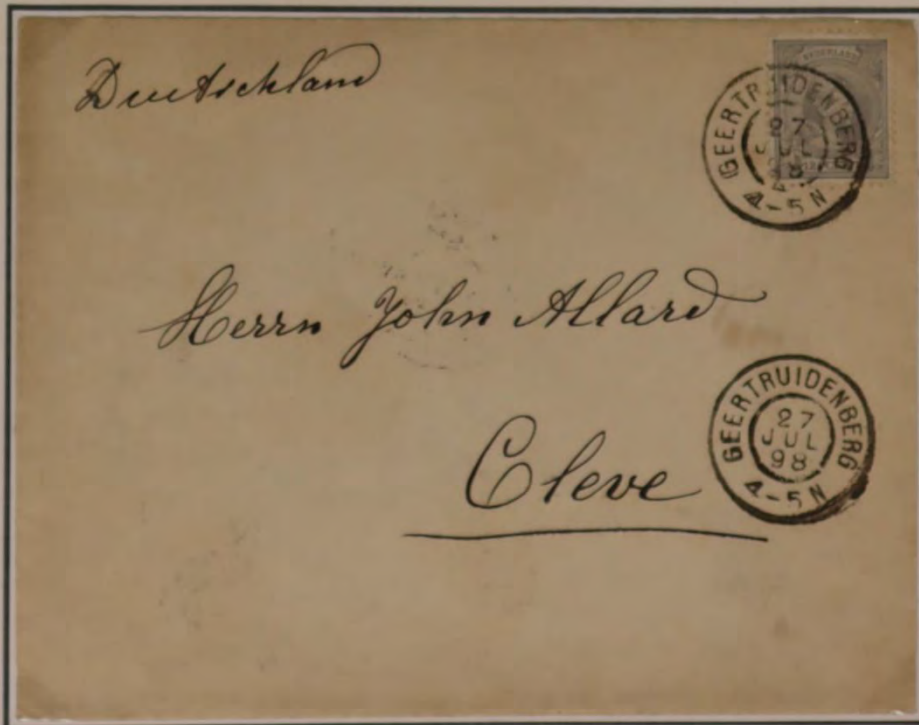 Deutschland
NEDERLAND
GEERTRUIDENBERG
27
JUL
98
4-5N
Herrn John Allard
GEERTRUIDENBERG
27
JUL
98
4-5N
Cleve